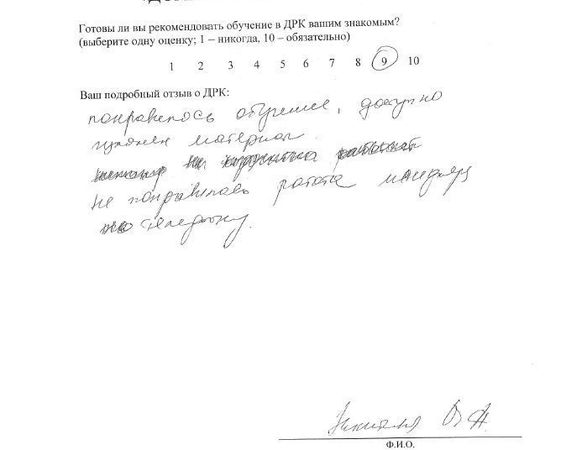 Готовы ли вы рекомендовать обучение в ДРК вашим знакомым?
(выберите одну оценку; 1 – никогда, 10 – обязательно)
1 2 3 4 5 6 7 8 9 10
Ваш подробный отзыв о ДРК:
понравилось обучение, доступно
материал
не понравилась работа менеджера
по телефону.
Ф.И.О.